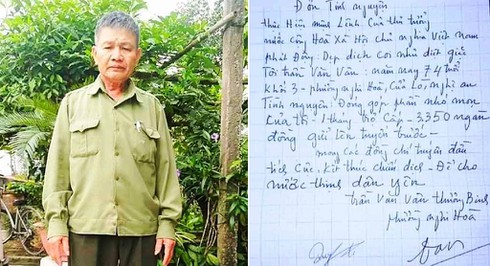 Đơn Tình nguyện
thực Hiện mệnh Lệnh Của thủ tướng
nước Cộng Hoà Xã Hội Chủ nghĩa Việt nam
phát Động Dẹp dịch Coi như dịch giặc
Tôi trần Văn Vấn: năm nay 74 tuổi
Khối 3 - phường nghi Hoà, Cửa Lò, nghệ an
Tình nguyện: Đóng góp phần nhỏ mọn
Của tôi 1 tháng trợ Cấp - 3350 ngàn
đồng gửi lên tuyến trước -
mong Các đồng chí tuyến đầu
tích Cực, kết thúc chiến dịch - Để cho
nước thịnh dân yên
trần Văn Vấn thương Binh
phường nghi Hoà